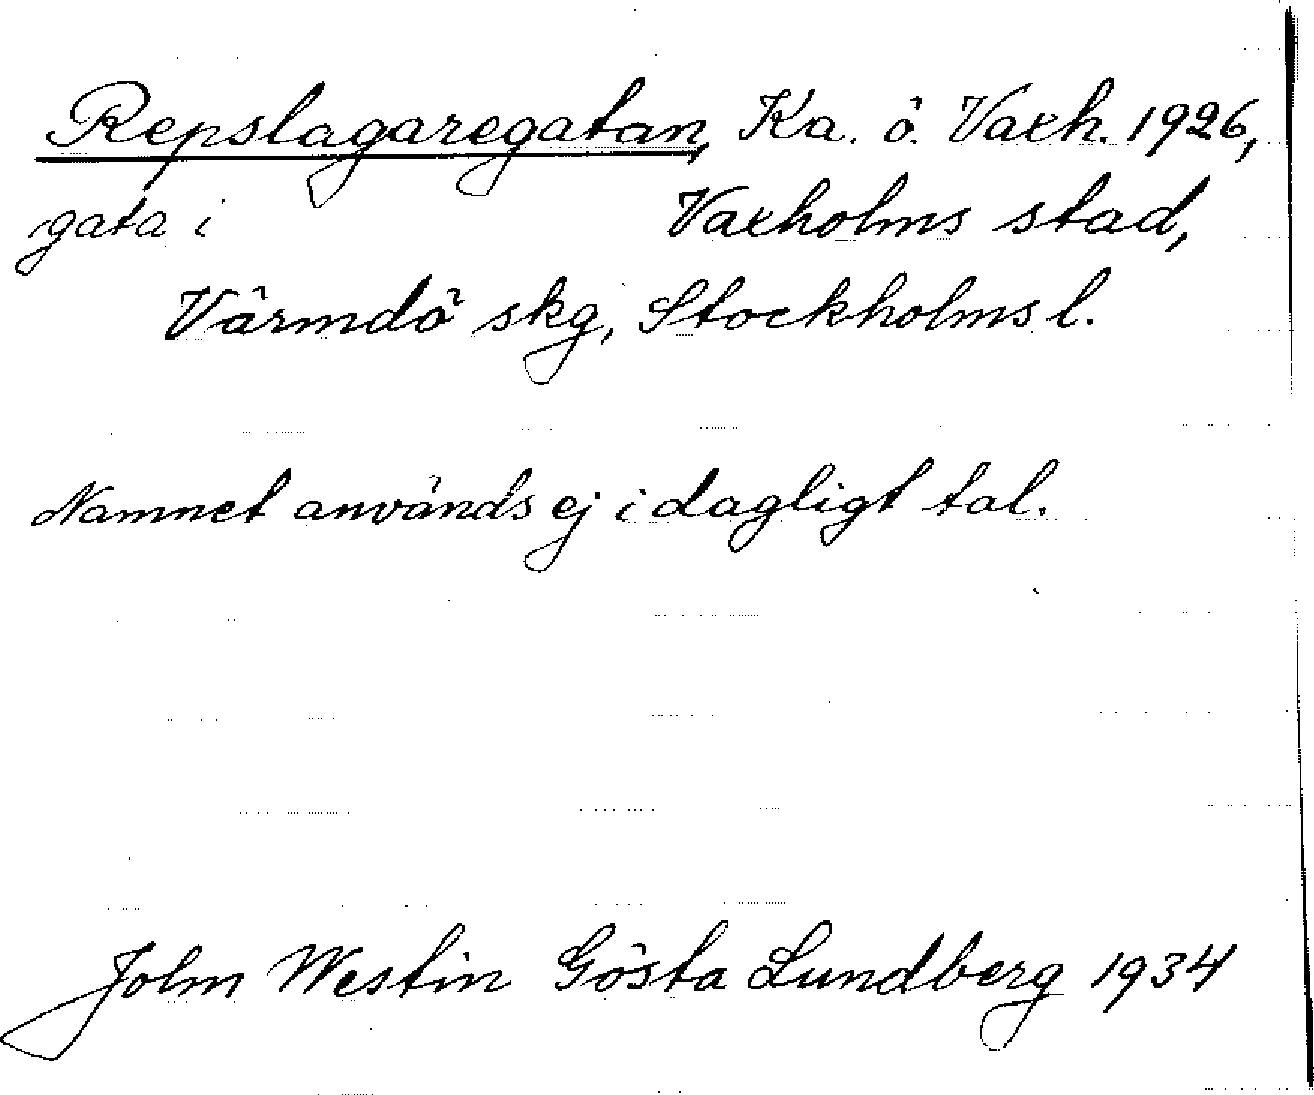 Repslagaregatan, Ka. ö. Vaxh. 1926,
gata i Vaxholms stad,
Värmdö skg, Stockholms l.
Namnet används ej i dagligt tal.
John Westin Gösta Lundberg 1934